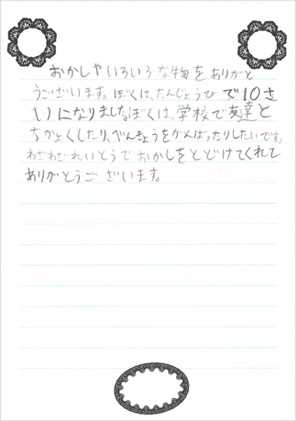 おかしやいろいろな物をありがと
うございます。ぼくは、たんじょうびで10さ
いになりました。ぼくは、学校で友達と
なかよくしたり、べんきょうをがんばったりしたいです。
わざわざれいとうでおかしをとどけてくれて
ありがとうございます。